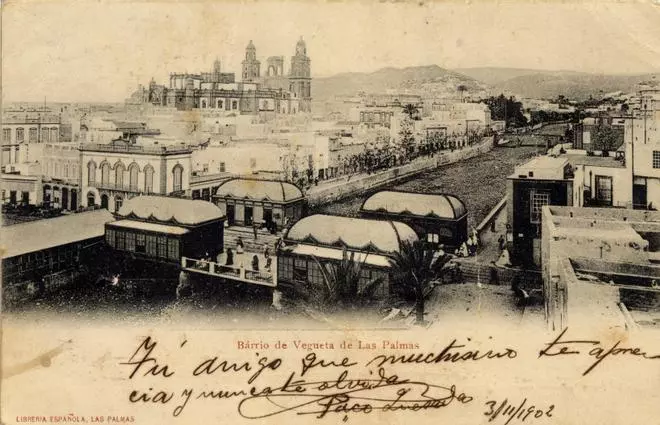 Bárrio de Vegueta de Las Palmas
Tú amigo que muchisimo te apre
cia y nunca te olvida
Paco
3/11/902
LIBRERIA ESPAÑOLA, LAS PALMAS